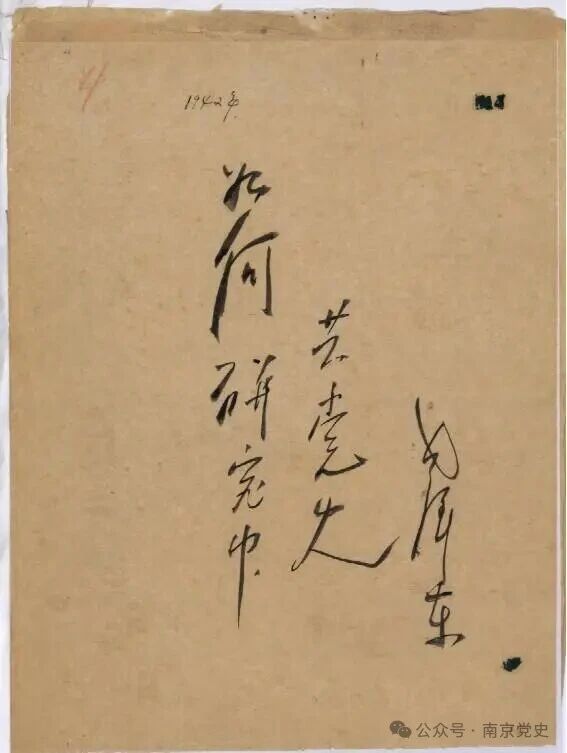 4
1942年
如何研究中
共党史
毛泽东
公众号·南京党史